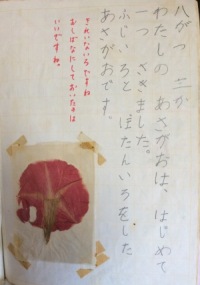 八がつ 三か
わたしの あさがおは、はじめて
一つ さきました。
ふじいろと ぼたんいろをした
あさがおです。
きれいないろですね
おしばなにしておいたのは
いいですね。